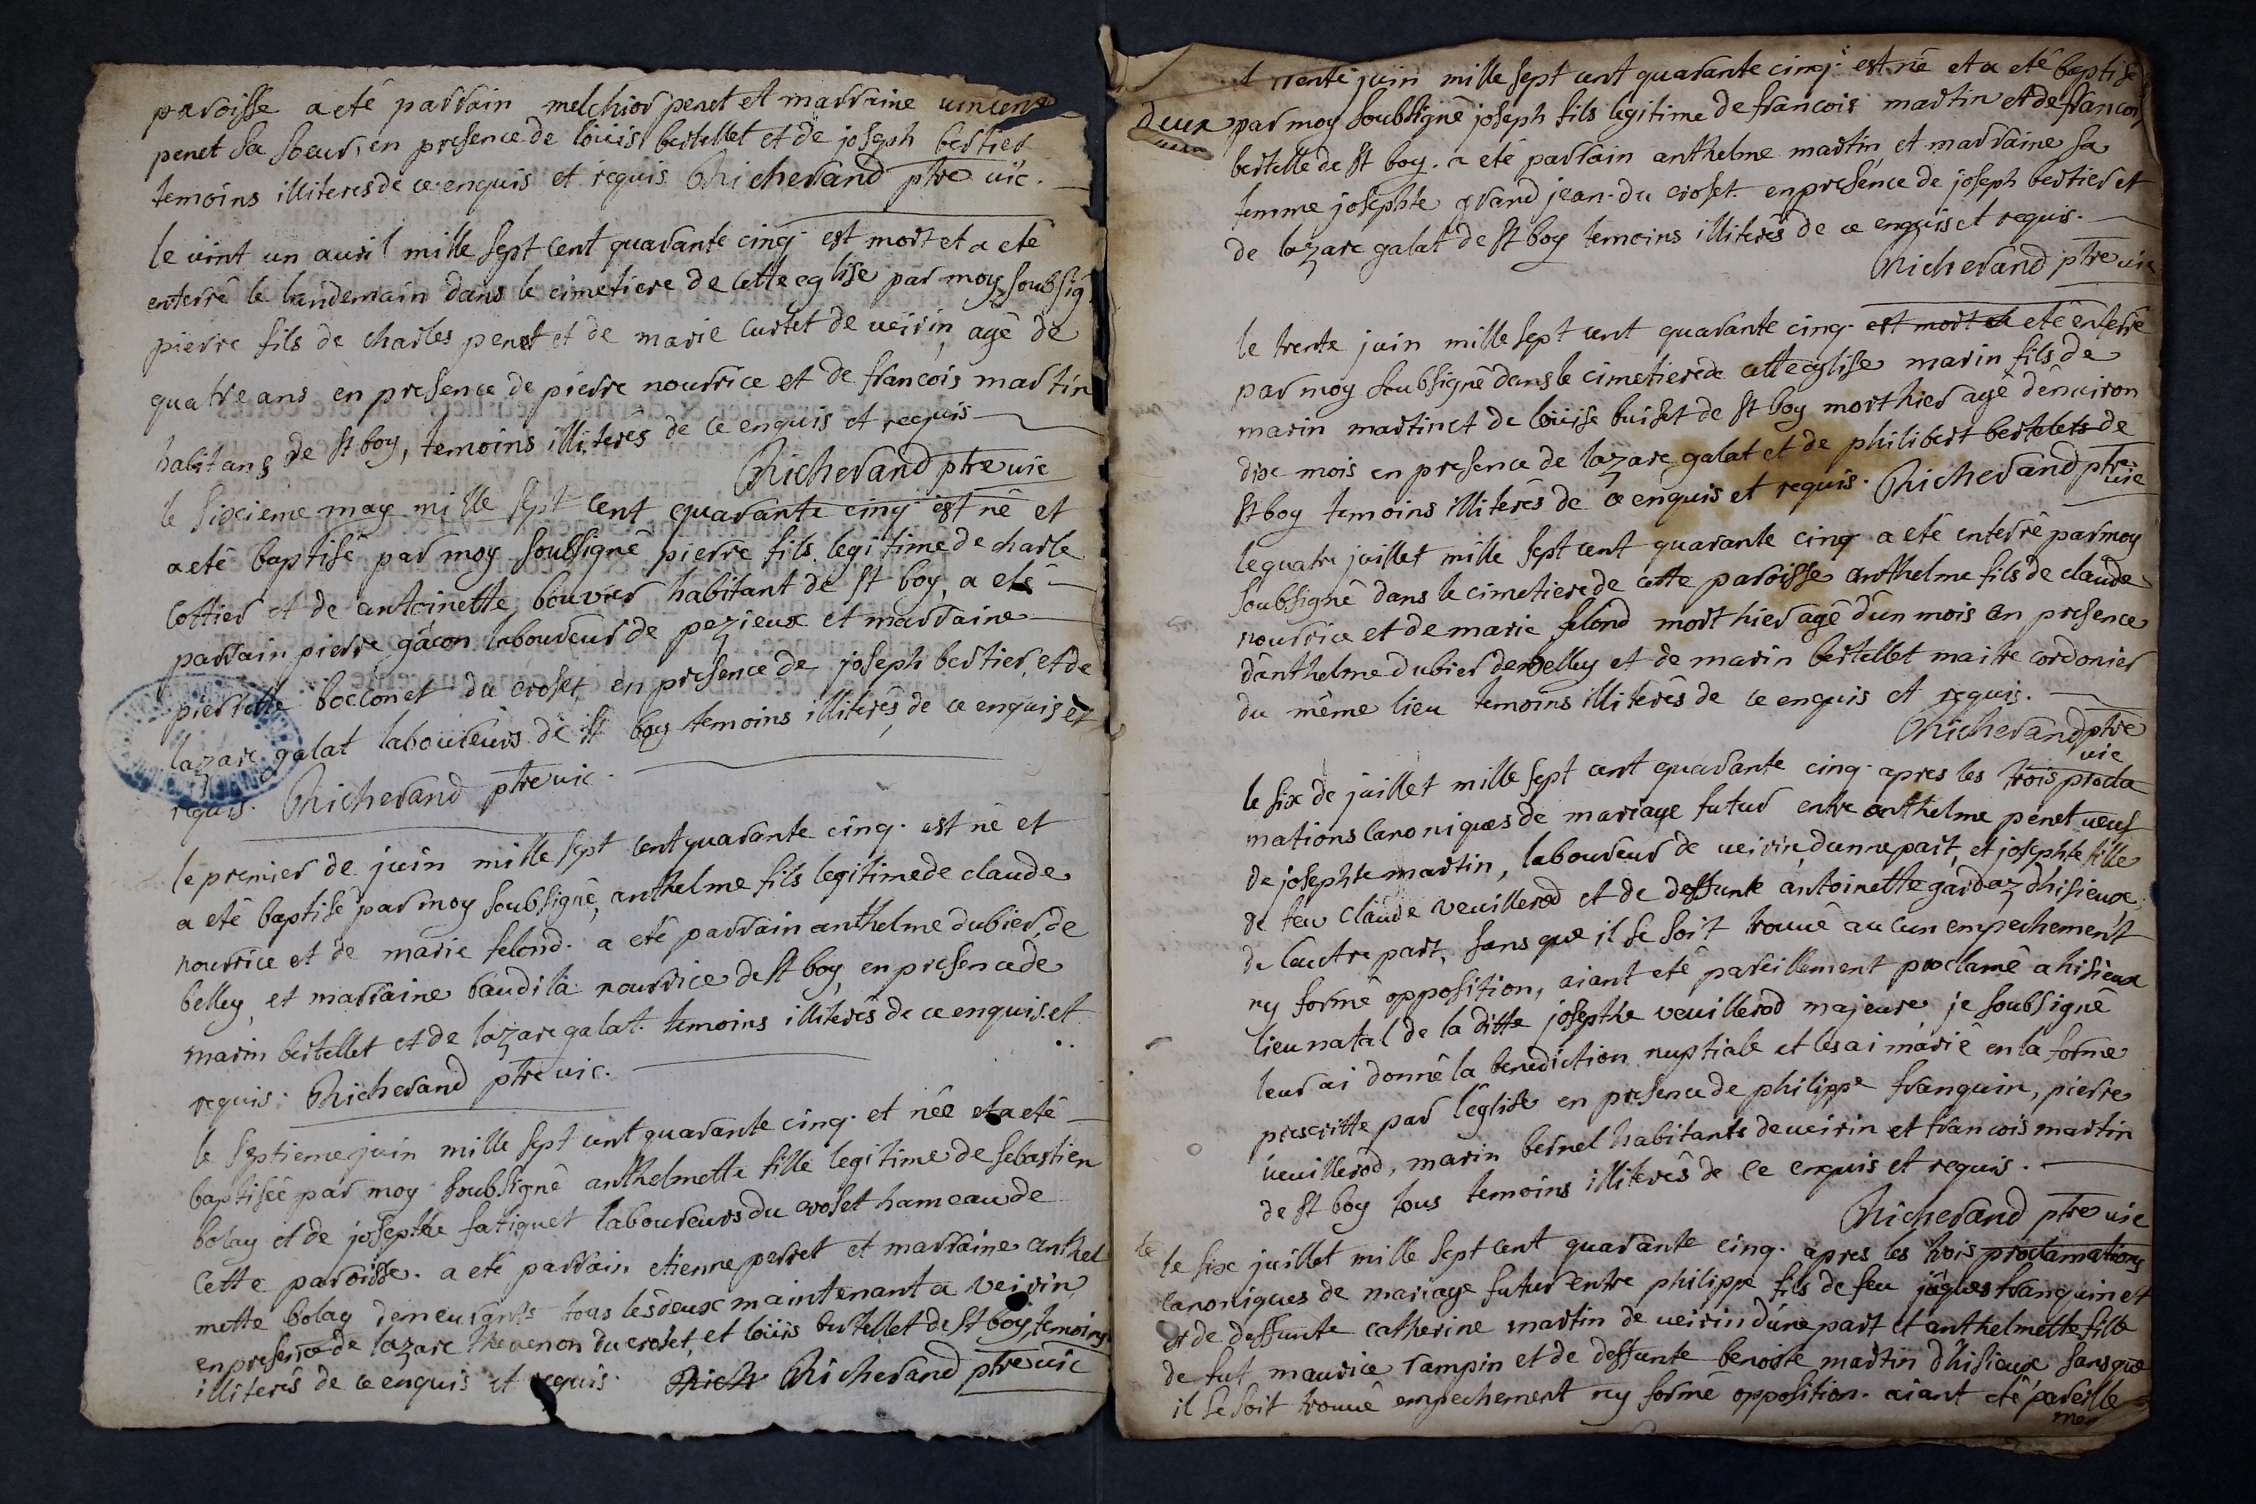 paroisse a eté parrain melchior penet et marraine
penet sa soeur, en presence de loüis bertellet et de joseph bertier
temoins illiterés de ce enquis et requis Richerand ptre vic.
le vint un avril mille sept cent quarante cinq. est mort et a eté
enterré le landemain dans le cimetiere de cette eglise par moy soubsig.
pierre fils de charles penet et de marie curtet de veirin, agé de
quatre ans en presence de pierre nourrice et de francois martin
habitans de St boy, temoins illiterés de ce enquis et requis
Richerand ptre vic
le sixieme may mille sept cent quarante cinq est né et
a eté baptisé par moy soubsigné pierre fils legitime de charle
cottier et de antoinette bouvier habitant de St boy, a eté
parrain pierre gâcon laboureur de pezieux et marraine
pierrette bocconet du croset, en presence de joseph bertier, et de
lazare galat laboureurs de St boy temoins illiterés, de ce enquis et
requis. Richerand ptre vic.
le premier de juin mille sept cent quarante cinq. est né et
a eté baptisé par moy soubsigné, anthelme fils legitime de claude
nourrice et de marie felond. a eté parrain anthelme dubier, de
belley, et marraine baudila nourrice de St boy, en presence de
marin bertellet et de lazare galat. temoins illiterés de ce enquis. et
requis. Richerand ptre vic.
le septieme juin mille sept cent quarante cinq. et née et a eté
baptisée par moy soubsigné anthelmette fille legitime de sebastien
bolay et de josepthe fatiguet laboureurs du croset hameau de
cette paroisse. a eté parrain etienne perret et marraine anthel
mette bolay demeurants tous les deux maintenant a veirin
en presence de lazare thevenon du croset, et loüis bertellet de St boy temoins
illiterés de ce enquis et requis. Rich Richerand ptre vic
trente juin mille sept cent quarante cinq. est né et a eté baptisé
deux par moy soubsigné joseph fils legitime de francois martin et de francoi
bertelle de St boy. a eté parrain anthelme martin, et marraine sa
femme josephte grand jean. du croset. en presence de joseph bertier et
de lazare galat de St boy temoins illiterés de ce enquis et requis.
Richerand ptre vic
le trente juin mille sept cent quarante cinq. est mort et eté enterré
par moy soubsigné dans le cimetiere de cette eglise marin fils de
marin martin et de loüise buiset de St boy mort hier agé d'environ
dix mois en presence de lazare galat et de philibert bertelets de
St boy temoins illiterés de ce enquis et requis. Richerand ptre vic
le quatre juillet mille sept cent quarante cinq a eté enterré par moy
soubsigné dans le cimetiere de cette paroisse anthelme fils de claude
nourrice et de marie felond mort hier agé d'un mois en presence
d'anthelme dubier de belley et de marin bertellet maitre cordonier
du même lieu temoins illiterés de ce enquis et requis.
Richerand ptre vic
le six de juillet mille sept cent quarante cinq. apres les trois procla
mations canoniques de mariage futur entre anthelme penet veuf
de josephte martin, laboureur de veirin, d'unne part, et josephte fille
de feu claude veuillerod et de deffunte antoinette gardaz d'hisieux,
de l'autre part, sans que il se soit trouvé aucun empechement
ny formé opposition, aiant eté pareillement proclamé a hisieux
lieu natal de la ditte josepthe veuillerod majeure je soubsigné
leur ai donné la benediction nuptiale et les ai marié en la forme
prescritte par l'eglise en presence de philippe franquin, pierre
veuillerod, marin bernel habitants de veirin et francois martin
de St boy tous temoins illiterés de ce enquis et requis.
Richerand ptre vic
le le six juillet mille sept cent quarante cinq. apres les trois proclamations
canoniques de mariage futur entre philippe fils de feu jâques franquin et
et de deffunte catherine martin de veirin d'une part et anthelmette fille
de fut maurice rampin et de deffunte benoite martin d'hisieux sans que
il se soit trouvé empechement ny formé opposition. aiant eté pareille
men